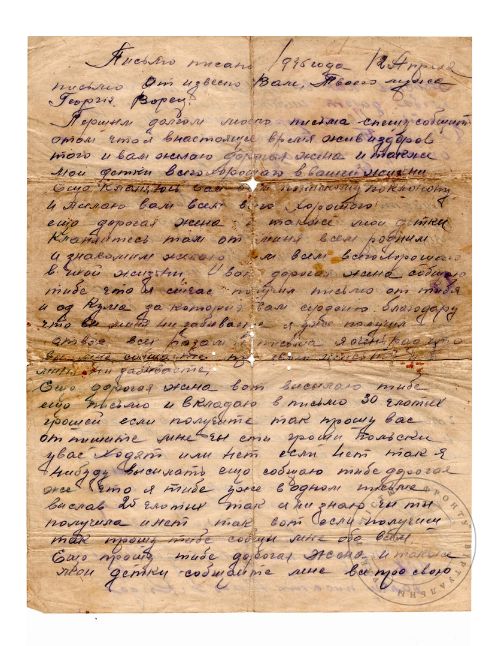 Письмо писано 1945 года 12 Апреля
письмо от извесно Вам, Твоего мужа
Георгия
Першем долгом моево письма спешу собщить
отом что я внастоящее время жив издоров
того и вам желаю дорогая жена и также
мои детки всего хорошаго ввашей жизни
Ещо Кланеюсь вам
и желаю вам всех всего хорошого
ещо дорогая жена и также мои детки
Кланяитесь там от меня всем родним
и знакомим желаю им всем всего хорошого
в иной жизни и вот дорогая жена собщаю
тибе что я сичас получил письмо от тибя
и од Кума за которие вам сердешно благодару
что ви меня ни забиваете я уже получил
от вас письма я очень рад что
ви мне
мине ни забиваете,
Ещо дорогая жена вот висилаю тибе
ещо письмо и вкладаю в письмо 30 злотих
грошей если получите так прошу вас
отпишите мне чи ети гроши польски
увас ходят или нет если нет так я
нибуду висилать ещо собщаю тибе дорогая
же что я тибе уже водном письме
вислав 25 злотих так я ни знаю чи ти
получила инет так вот если получиш
так прошу тибе собщи мне обо всем
Ещо прошу тибе дорогая жена и также
мои детки собщайте мне все про свою
ВИРТУАЛЬНЫЙ